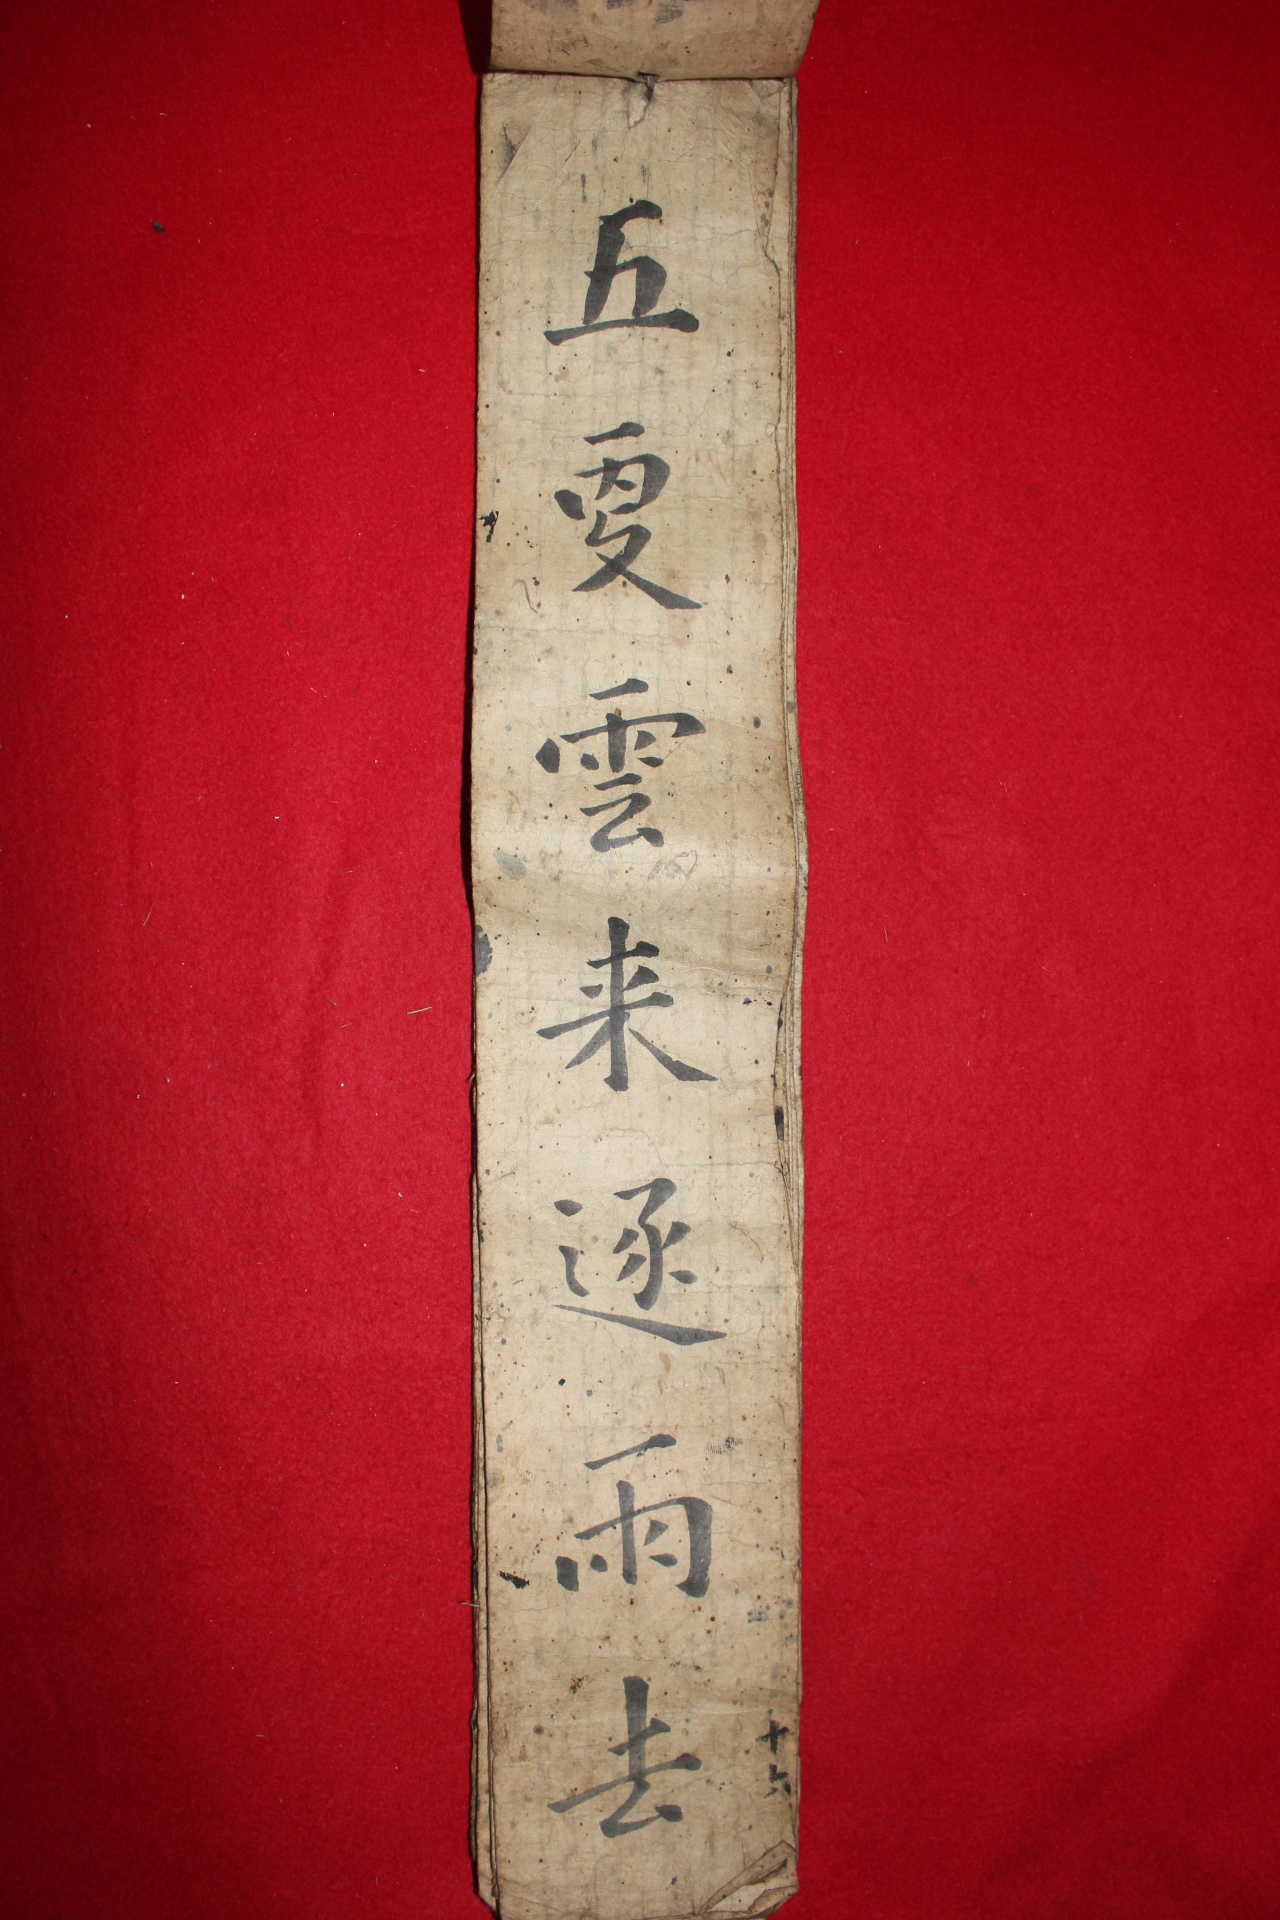 五更雲来逐雨去
十六